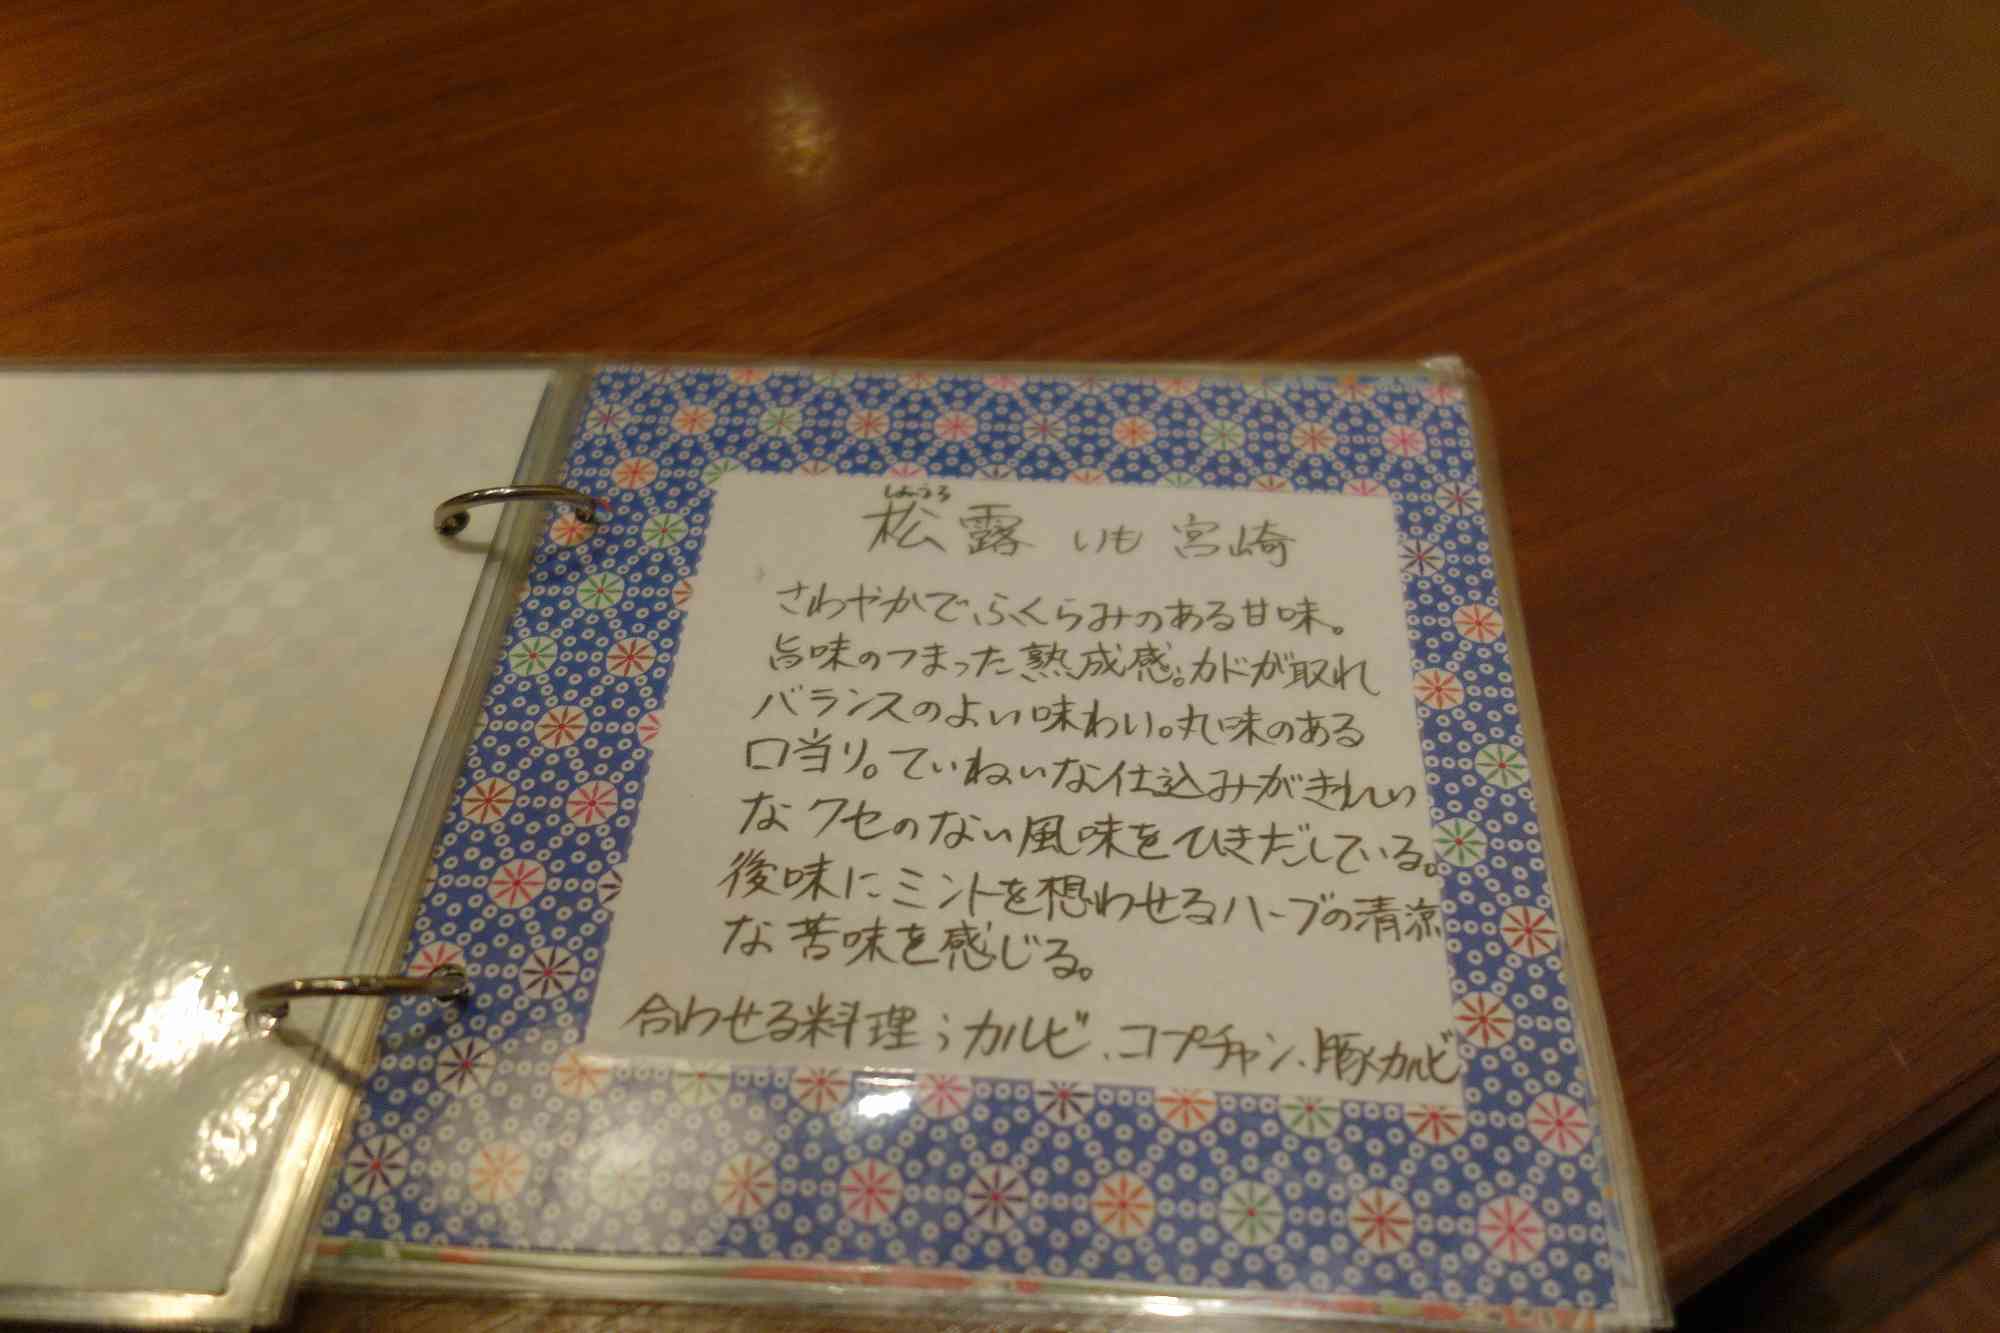 しょうろ
松露 いも 宮崎
さわやかでふくらみのある甘味。
旨味のつまった熟成感。カドが取れ
バランスのよい味わい。丸味のある
口当り。ていねいな仕込みがきれい
なクセのない風味をひきだしている。
後味にミントを想わせるハーブの清涼
な苦味を感じる。
合わせる料理;カルビ、コプチャン、豚カルビ